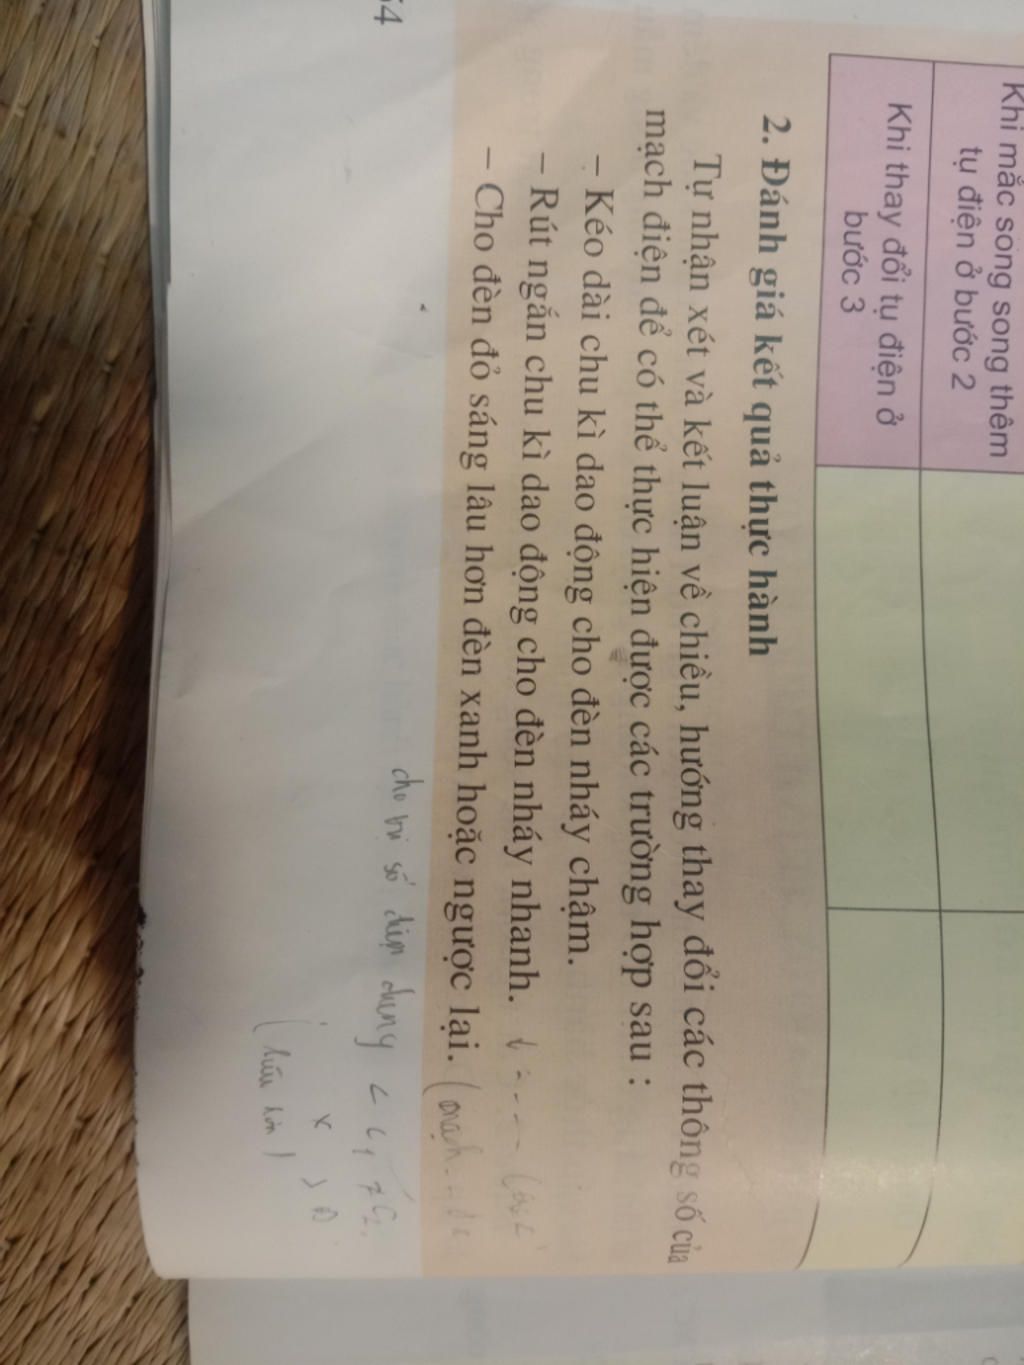 Khi mắc song song thêm
tụ điện ở bước 2
Khi thay đổi tụ điện ở
bước 3
2. Đánh giá kết quả thực hành
Tự nhận xét và kết luận về chiều, hướng thay đổi các thông số của
mạch điện để có thể thực hiện được các trường hợp sau :
– Kéo dài chu kì dao động cho đèn nháy chậm.
– Rút ngắn chu kì dao động cho đèn nháy nhanh.
– Cho đèn đỏ sáng lâu hơn đèn xanh hoặc ngược lại.
cho số điện dung < C1 ≠ C2
54